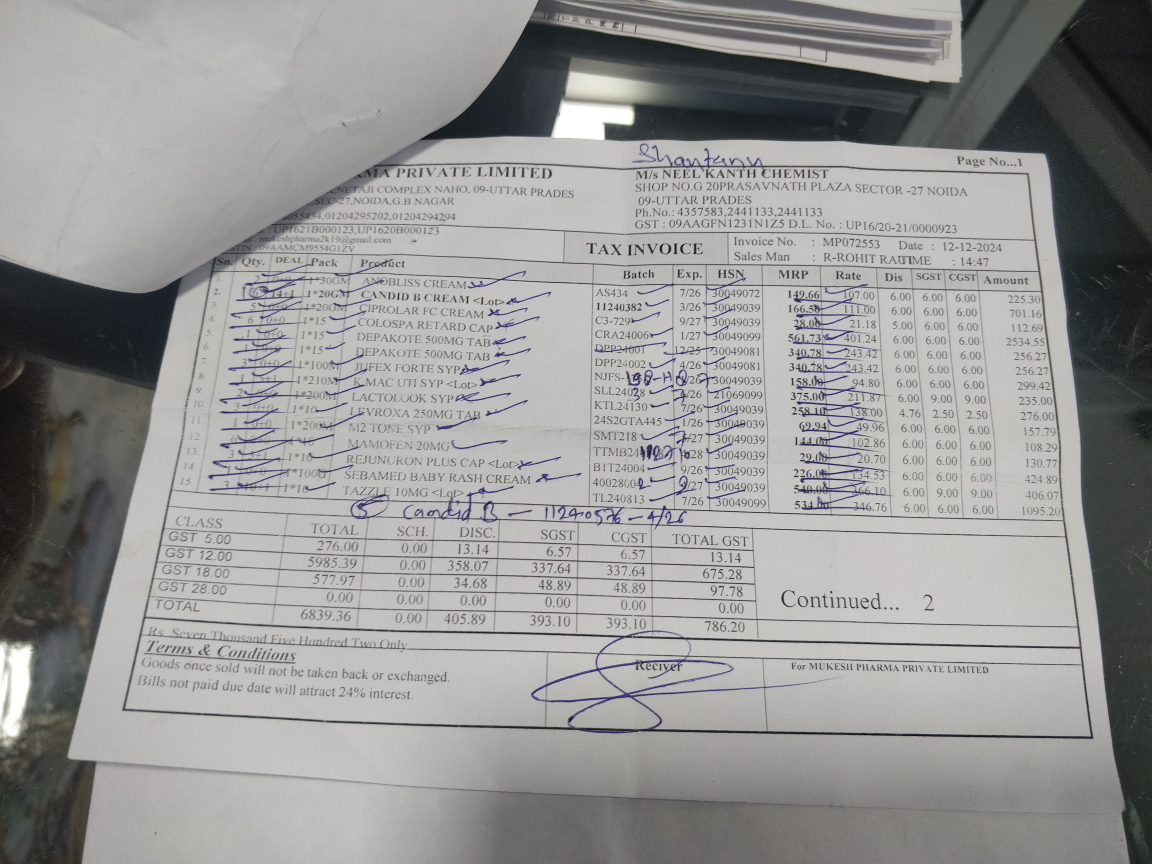 Shantanu
Page No...1
PHARMA PRIVATE LIMITED
M/s NEEL KANTH CHEMIST
NETAJI COMPLEX NAHO, 09-UTTAR PRADES
SHOP NO.G 20PRASAVNATH PLAZA SECTOR -27 NOIDA
SEC-27,NOIDA,G.B NAGAR
09-UTTAR PRADES
01204295202,01204294294
Ph.No.: 4357583,2441133,2441133
UP1621B000123,UP1620B000123
GST : 09AAGFN1231N1Z5 D.L. No.: UP16/20-21/0000923
mukeshpharma2k19@gmail.com
09AAMCM9554G1ZV
TAX INVOICE
Invoice No. : MP072553 Date : 12-12-2024
Sales Man : R-ROHIT RAUTIME : 14:47
Sn. Qty. DEAL Pack Product Batch Exp. HSN MRP Rate Dis SGST CGST Amount
1*30GM ANDBLISS CREAM AS434 7/26 30049072 149.66 107.00 6.00 6.00 6.00 225.30
2. 1*20GM CANDID B CREAM <Lot> 11240382 3/26 30049039 166.50 111.00 6.00 6.00 6.00 701.16
3. CIPROLAR FC CREAM C3-729 9/27 30049039 28.00 21.18 5.00 6.00 6.00 112.69
4. 1*15 COLOSPA RETARD CAP CRA24006 1/27 30049099 561.73 401.24 6.00 6.00 6.00 2534.55
5. 1*15 DEPAKOTE 500MG TAB DPP24001 12/25 30049081 340.78 243.42 6.00 6.00 6.00 256.27
6. 1*15 DEPAKOTE 500MG TAB DPP24002 4/26 30049081 340.78 243.42 6.00 6.00 6.00 256.27
7. 1*100M JUFEX FORTE SYP NJFS- 30049039 158.00 94.80 6.00 6.00 6.00 299.42
8. 1*210M K MAC UTI SYP <Lot> SLL24028 21069099 375.00 211.87 6.00 9.00 9.00 235.00
9. 1*200M LACTOLOOK SYP KTL24130 7/26 30049039 258.10 138.00 4.76 2.50 2.50 276.00
10. 1*10 LEVROXA 250MG TAB 24S2GTA445 1/26 30049039 69.94 49.96 6.00 6.00 6.00 157.79
11. 1*200M M2 TONE SYP SMT218 30049039 144.00 102.86 6.00 6.00 6.00 108.29
12. 1*10 MAMOFEN 20MG 30049039 29.00 20.70 6.00 6.00 6.00 130.77
13. 1*10 REJUNURON PLUS CAP <Lot> B1T24004 9/26 30049039 226.00 134.53 6.00 6.00 6.00 424.89
14. 1*100G SEBAMED BABY RASH CREAM 30049039 540.00 366.10 6.00 9.00 9.00 406.07
15. 1*10 TAZZLE 10MG <Lot> TL240813 7/26 30049099 534.00 346.76 6.00 6.00 6.00 1095.20
5 Candid B - 11240576 - 4/26
CLASS TOTAL SCH. DISC. SGST CGST TOTAL GST
GST 5.00 276.00 0.00 13.14 6.57 6.57 13.14
GST 12.00 5985.39 0.00 358.07 337.64 337.64 675.28
GST 18.00 577.97 0.00 34.68 48.89 48.89 97.78
GST 28.00 0.00 0.00 0.00 0.00 0.00 0.00
TOTAL 6839.36 0.00 405.89 393.10 393.10 786.20
Continued... 2
Rs. Seven Thousand Five Hundred Two Only
Terms & Conditions
Goods once sold will not be taken back or exchanged.
Bills not paid due date will attract 24% interest.
Reciver
For MUKESH PHARMA PRIVATE LIMITED